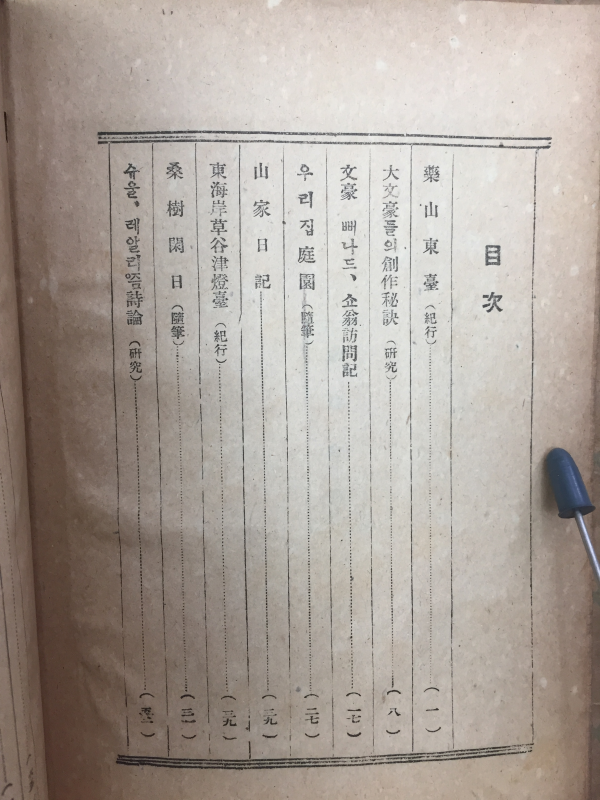 目次
藥山東臺（紀行）（一）
大文豪들의創作秘訣（研究）（八）
文豪 뻐나드、쇼翁訪問記（一七）
우리집庭園（隨筆）（二七）
山家日記（二九）
東海岸草谷津燈臺（紀行）（二九）
桑樹閑日（隨筆）（三一）
슈올、레알리즘詩論（研究）